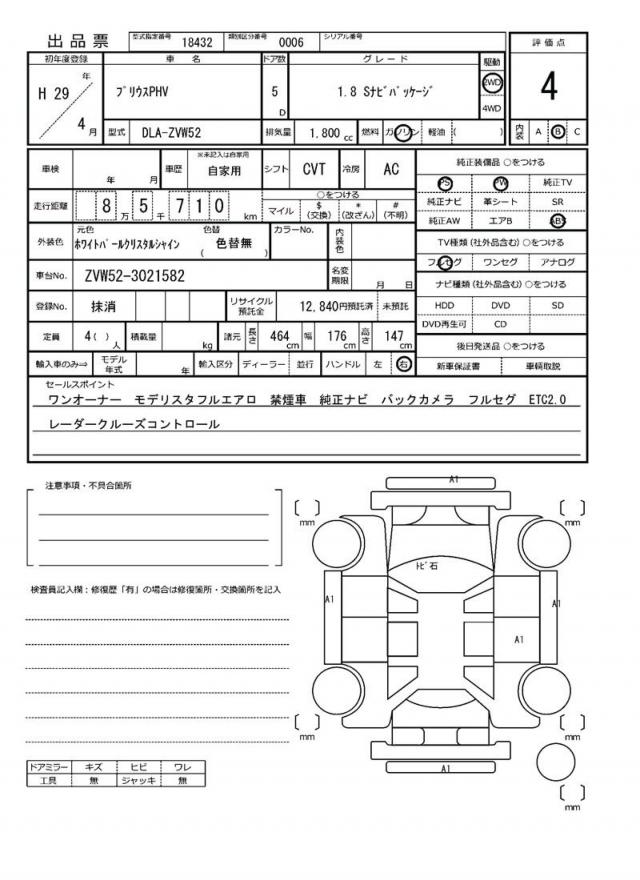 出品票 型式指定番号 18432 類別区分番号 0006 シリアル番号
初年度登録 車名 ドア数 グレード 駆動 評価点
H 29 年 4 月 プリウスPHV 5 D 1.8 Sナビパッケージ 2WD 4WD 4
型式 DLA-ZVW52 排気量 1,800 cc 燃料 ガソリン 軽油 ( ) 内装 A B C
車検 年 月 車歴 ※未記入は自家用 自家用 シフト CVT 冷房 AC 純正装備品 ○をつける
PS PW 純正TV
走行距離 8万5千710 km ○をつける マイル $(交換) *(改ざん) #(不明) 純正ナビ 革シート SR
純正AW エアB ABS
外装色 元色 ホワイトパールクリスタルシャイン 色替 ( 色替無 ) カラーNo. 内装色 TV種類(社外品含む)○をつける
フルセグ ワンセグ アナログ
車台No. ZVW52-3021582 名変期限 月 日 ナビ種類(社外品含む)○をつける
登録No. 抹消 リサイクル預託金 12,840円預託済 未預託 HDD DVD SD
DVD再生可 CD
定員 4( )人 積載量 kg 諸元 長さ 464cm 幅 176cm 高さ 147cm 後日発送品 ○をつける
輸入車のみ⇒ モデル年式 年 輸入区分 ディーラー 並行 ハンドル 左 右 新車保証書 車輌取説
セールスポイント
ワンオーナー モデリスタフルエアロ 禁煙車 純正ナビ バックカメラ フルセグ ETC2.0
レーダークルーズコントロール
注意事項・不具合箇所
検査員記入欄：修復歴「有」の場合は修復箇所・交換箇所を記入
A1
mm
mm
トビ石
A1
A1
A1
mm
mm
A1
mm
ドアミラー キズ ヒビ ワレ
工具 無 ジャッキ 無